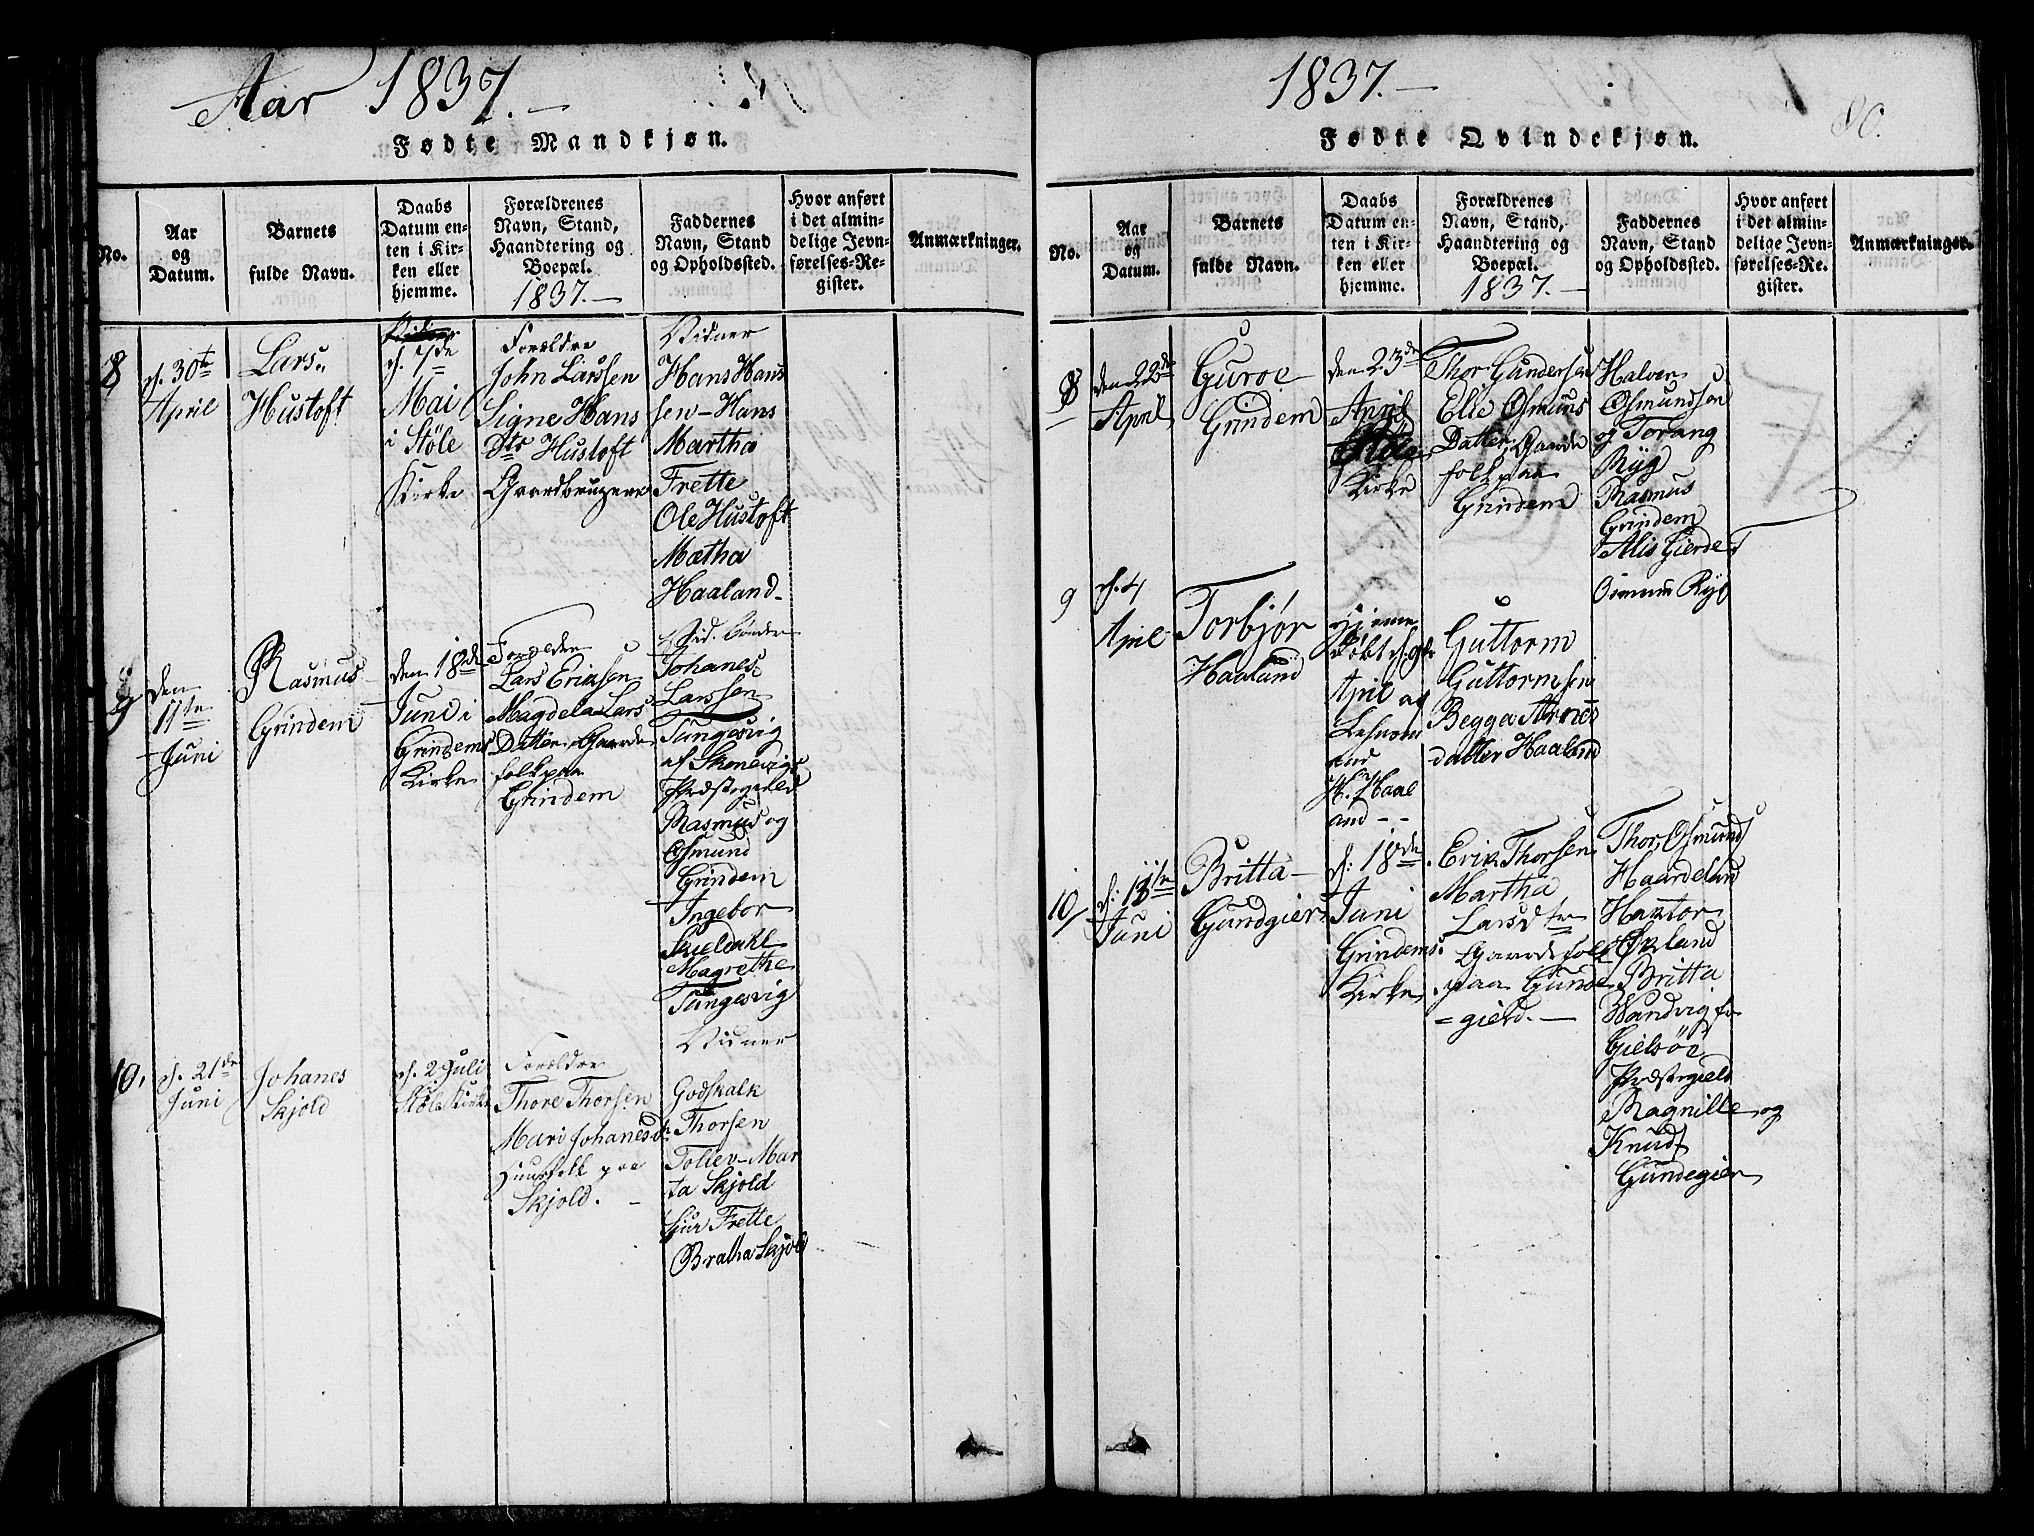 Aar 1837.-
Fødte Mandkjøn.
No.
Aar
og
Datum.
Barnets
fulde Navn.
Daabs
Datum en-
ten i Kir-
ken eller
hjemme.
Forældrenes
Navn, Stand,
Haandtering og
Boepæl.
1837.-
Faddernes
Navn, Stand
og Opholdssted.
Hvor anført
i det almin-
delige Jevn-
førelses-Re-
gister.
Anmærkninger.
8
d. 30te
April
Lars
Hustoft
d. 7de
Mai
i Stöle
Kirke
Forældre
John Larssen
Signe Hans
Dtr Hustoft
Gaardbrugere
Vidner
Hans Hans
sen-Hans
Martha
Frette
Ole Hustoft
Mætha
Haaland-
9
den
11te
Juni
Rasmus
Grindem
den 18de
Juni i
Grindems
Kirke
Forældre
Lars Eriksen
Magdela Lars
Datter Gaarde
folk paa
Grindem
Vid. Bönder
Johanes
Larssen
Tungesvig
af Skonevigs
Præstegield
Rasmus og
Osmund
Grindem
Ingebor
Skieldahl
Magrethe
Tungesvig
10.
d. 21de
Juni
Johanes
Skjold
d. 2 Juli
Stöle Kirke
Forældre
Thore Thorsen
Mari Johanesdtr
Huusfolk paa
Skjold.-
Vidner
Godskalk
Thorsen
Toliev-Mar
ta Skjold
Sjur Frette
Bratha Skjold
1837.-
80.
Fødte Qvindekjøn.
No.
Aar
og
Datum.
Barnets
fulde Navn.
Daabs
Datum en-
ten i Kir-
ken eller
hjemme.
Forældrenes
Navn, Stand,
Haandtering og
Boepæl.
1837.-
Faddernes
Navn, Stand
og Opholdssted.
Hvor anført
i det almin-
delige Jevn-
førelses-Re-
gister.
Anmærkninger.
8
den 22de
April
Guroe
Grindem
den 23de
April
Kirke
Thor Gundersen
Elle Osmuns
Datter, Gaarde
folk paa
Grindem
Halvor
Osmundsen
og Torang
Ryg
Rasmus
Grindem
Alis Gierde
Osmun Ryg
9
d. 4
April
Torbjør
Haaland
Hjemme
döbt d. 9de
April af
H. Haal
and--
Guttorm
Guttormsen
Begga Arnes
datter Haaland
10
d: 11te
Juni
Britta-
Gundgier
d: 18de
Juni
Grindems
Kirke
Erik Thorsen
Martha
Larsdtr
Gaardefolk
paa Gunde
=gierd.-
Thor, Osmund
Haardeland
Havtor
Ørland
Britta
Wandvig fr
Gielsöe
Præstegield
Ragnille og
Knud
Gundegier